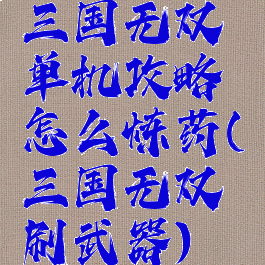 三国无双
单机攻略
怎么炼药(
三国无双
刷武器)